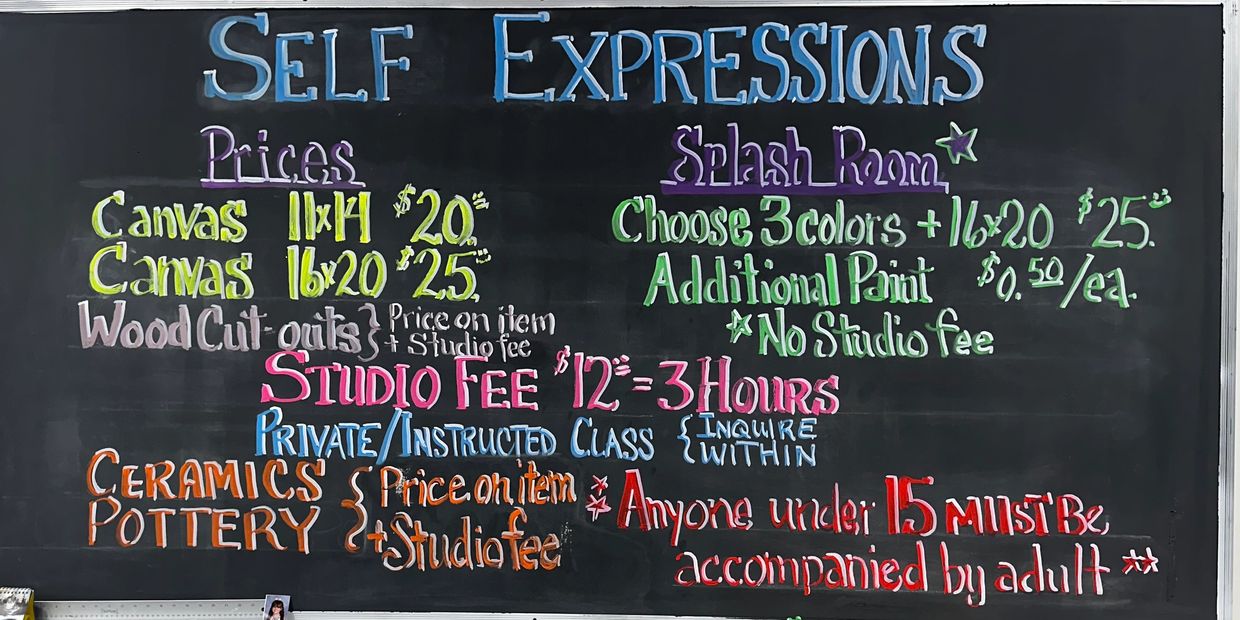 SELF EXPRESSIONS
Prices
Canvas 11x14 $20.
Canvas 16x20 $25.
Wood Cut-outs } Price on item
+ Studio fee
Splash Room*
Choose 3 colors + 16x20 $25.
Additional Paint $0.50/ea.
*No Studio fee
STUDIO FEE $12 = 3 HOURS
PRIVATE/INSTRUCTED CLASS { INQUIRE
WITHIN
CERAMICS
POTTERY { Price on item
+ Studio fee
**Anyone under 15 MUST Be
accompanied by adult **